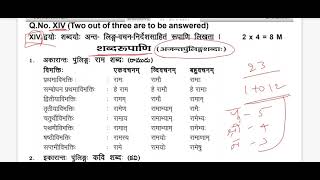 Q.No. XIV (Two out of three are to be answered)
XIV द्वयोः शब्दयोः अन्त- लिङ्ग-वचन-निर्देशसहितं रूपाणि लिखत । 2 x 4 = 8 M
शब्दरूपाणि (अजन्तपुल्लिङ्गशब्दाः)
1. अकारान्तः पुंलिङ्गः राम शब्दः
विभक्तिः एकवचनम् द्विवचनम् बहुवचनम्
प्रथमाविभक्तिः रामः रामौ रामाः
सम्बोधन प्रथमाविभक्तिः हे राम हे रामौ हे रामाः
द्वितीयाविभक्तिः रामम् रामौ रामान्
तृतीयाविभक्तिः रामेण रामाभ्याम् रामैः
चतुर्थीविभक्तिः रामाय रामाभ्याम् रामेभ्यः
पञ्चमीविभक्तिः रामात् रामाभ्याम् रामेभ्यः
षष्ठीविभक्तिः रामस्य रामयोः रामाणाम्
सप्तमीविभक्तिः रामे रामयोः रामेषु
2. इकारान्तः पुंलिङ्गः कवि शब्दः
23
1 to 12
पु - 5
स्त्री - 4
न - 3